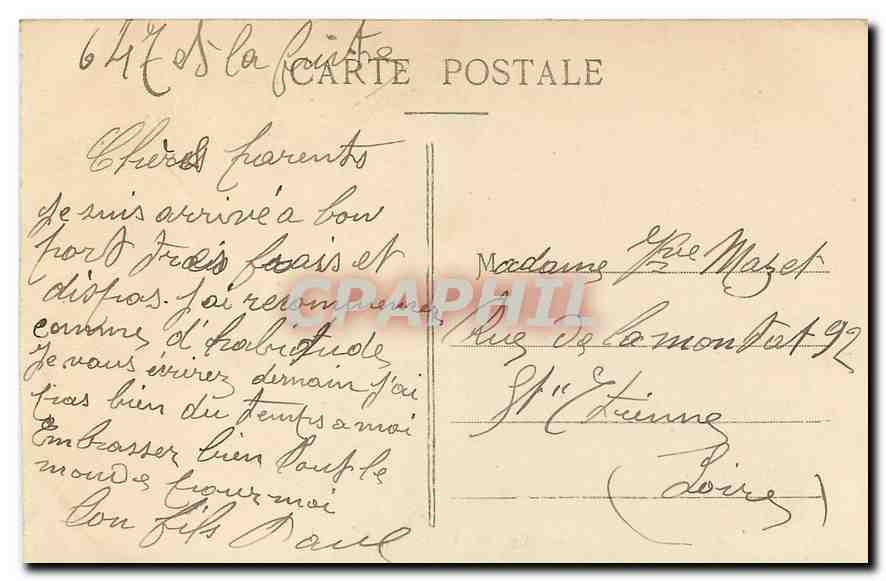 647 de la
CARTE POSTALE
Chères parents
Je suis arrivé a bon
port très frais et
dispos. J'ai recommencer
comme d'habitude
Je vous écrirez demain j'ai
pas bien du temps a moi
Embrasser bien tout le
monde pour moi
Ton fils Paul
Madame Vve Mazet
Rue de la montat 92
St Etienne
(Loire)
CPAPHIL